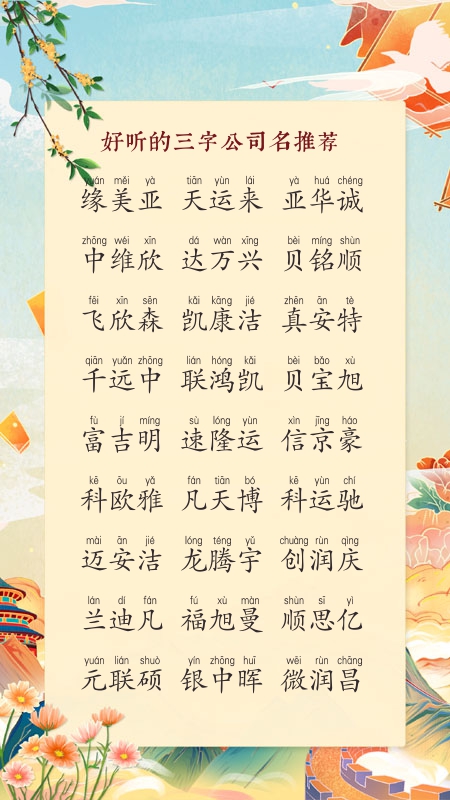 好听的三字公司名推荐
yuán měi yà tiān yùn lái yà huá chéng
缘美亚 天运来 亚华诚
zhōng wéi xīn dá wàn xīng bèi míng shùn
中维欣 达万兴 贝铭顺
fēi xīn sēn kǎi kāng jié zhēn ān tè
飞欣森 凯康洁 真安特
qiān yuǎn zhōng lián hóng kǎi bèi bǎo xù
千远中 联鸿凯 贝宝旭
fù jí míng sù lóng yùn xìn jīng háo
富吉明 速隆运 信京豪
kē ōu yǎ fán tiān bó kē yùn chí
科欧雅 凡天博 科运驰
mài ān jié lóng téng yǔ chuàng rùn qìng
迈安洁 龙腾宇 创润庆
lán dí fán fú xù màn shùn sī yì
兰迪凡 福旭曼 顺思亿
yuán lián shuò yín zhōng huī wēi rùn chāng
元联硕 银中晖 微润昌